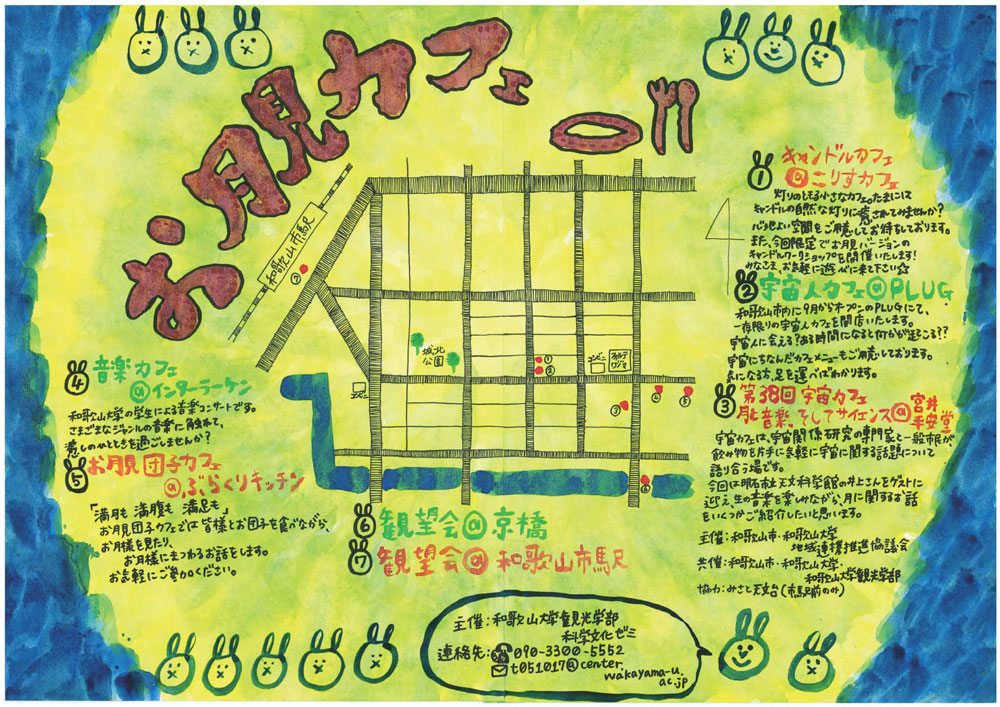 お月見カフェ
和歌山市馬駅
⑦
城北
公園
コンビニ
コンビニ
①
②
③
④
⑤
⑥
① キャンドルカフェ
@こりすカフェ
灯りのともる小さなカフェ。たまには
キャンドルの自然な灯りに癒されてみませんか?
心地よい空間をご用意してお待ちしております。
また、今回限定でお月見バージョンの
キャンドルワークショップを開催いたします!
みなさま、お気軽に遊べに来て下さい☆
② 宇宙人カフェ@PLUG
和歌山市内に9月からオープンのPLUGにて、
一夜限りの宇宙人カフェを開店いたします。
宇宙人に会える?ある時間になると何かが起こる??
宇宙にちなんだカフェメニューもご用意しております。
気になる方、足を運べばわかります。
③ 第38回 宇宙カフェ
月と音楽、そしてサイエンス@宮井平安堂
宇宙カフェは、宇宙関係研究の専門家と一般市民が
飲み物を片手に気軽に宇宙に関する話題について
語り合う場です。
今回は明石市立天文科学館の井上さんをゲストに
迎え、生の音楽を楽しみながら、月に関するお話
をいくつかご紹介したいと思います。
主催:和歌山市・和歌山大学
地域連携推進協議会
共催:和歌山市・和歌山大学・
和歌山大学観光学部
協力:みさと天文台(市馬駅前のみ)
④ 音楽カフェ
@インターラーケン
和歌山大学の学生による音楽コンサートです。
さまざまなジャンルの音楽に触れて、
癒しのひとときを過ごしませんか?
⑤ お月見団子カフェ
@ぶらくりキッチン
「満月も 満腹も 満足も」
お月見団子カフェでは皆様とお団子を食べながら、
お月様を見たり、
お月様にまつわるお話をします。
お気軽にご参加ください。
⑥ 観望会@京橋
⑦ 観望会@和歌山市馬駅
主催:和歌山大学観光学部
科学文化ゼミ
連絡先:☎090-3300-5552
✉t051017@center.
wakayama-u.
ac.jp